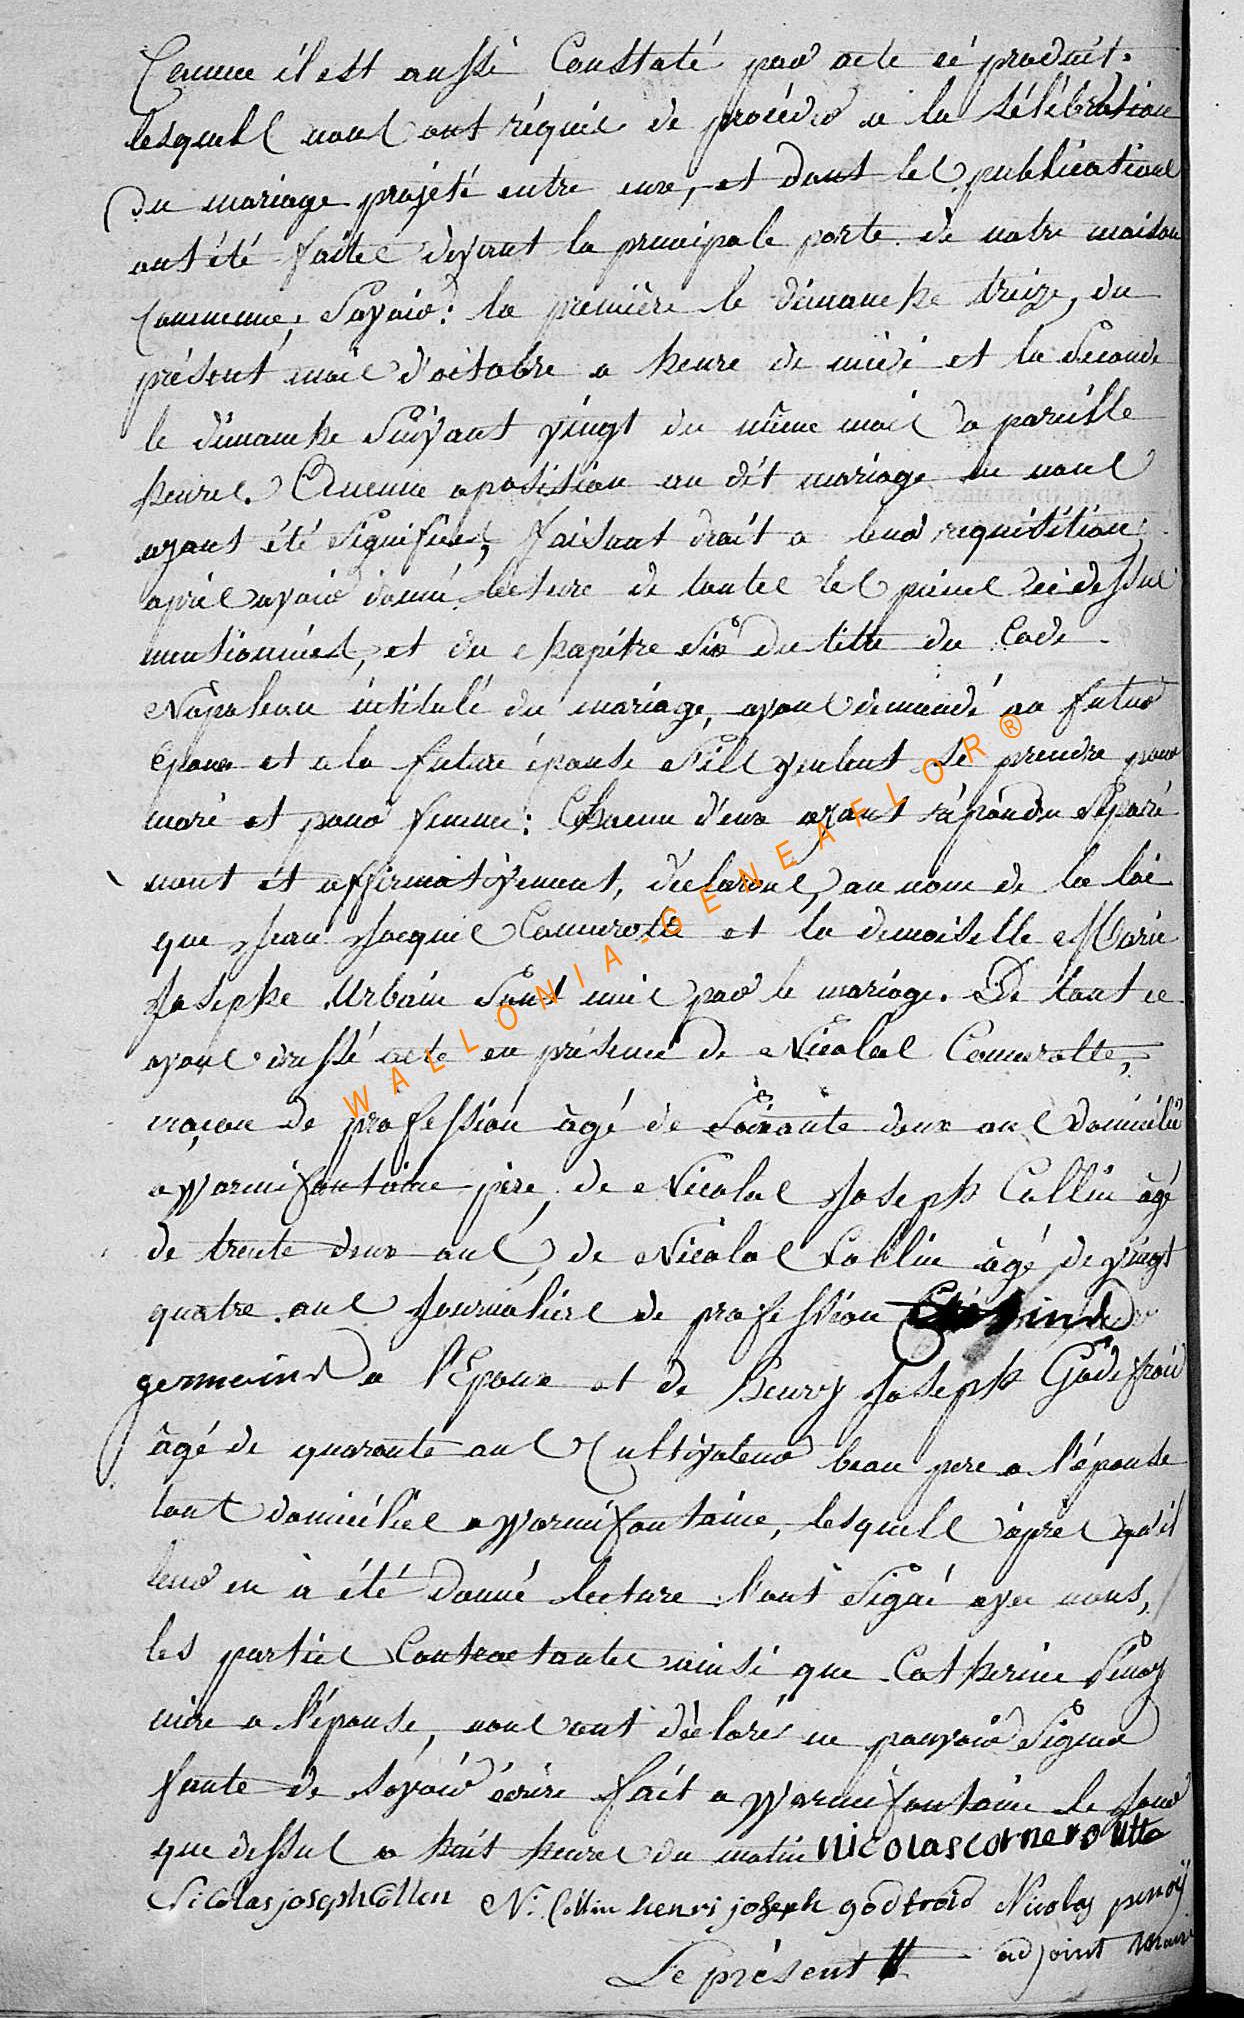 Comme il est aussi Constaté par acte ci produit.
lesquels nous ont réquis de procéder a la Sélébration
du mariage projeté entre eux, et dont les publications
ont été faites devant la principale porte de notre maison
Commune, Savoir: la première le dimanche treize, du
présent mois d'octobre a heure de midi et la Seconde
le dimanche Suivant vingt du même mois a pareille
heure. Aucune oposition au dit mariage ne nous
ayant été Signifiée, faisant droit a leur requisition,
après avoir donné lecture de toutes les pieces ci dessus
mentionnées, et du chapitre Six du titre du Code
Nàpoleon intitulé du mariage, avons demandé au futur
épour et a la future épouse S'ils veulent se prendre pour
mari et pour femme: Chacun d'eux ayant répondu Séparé
ment et affirmativement, déclarons, au nom de la loi
que Jean Jacques Cornerotte et la demoiselle Marie
Josephe Urbain Sont unis par le mariage. De tout ce
avons dressé acte en présence de Nicolas Cornerotte,
maçon de profession âgé de Soixante deux ans Domicilié
a Warmifontaine pere, de Nicolas Joseph Collin âgé
de trente deux ans, de Nicolas Collin âgé de vingt
quatre ans Journaliers de profession
germains a l'Epoux et de Henry Joseph Godefroid
âgé de quarante ans Cultivateur beau pere a l'épouse
tout domiciliés a Warmifontaine, lesquels après qu'il
leur en à été donné lecture l'ont Signé avec nous,
les parties Contractantes ainsi que Catherine Pinoy
mère a l'épouse, nous ont déclaré ne pouvoir Signer
faute de Savoir écrire fait a Warmifontaine le Jour
que dessus a huit heures du matin nicolas cornerotte
Nicolas joseph Collin N. Collin henri joseph godfroid Nicolas pinoy
Le présent adjoint maire
WALLONIA-GENEAFLOR®